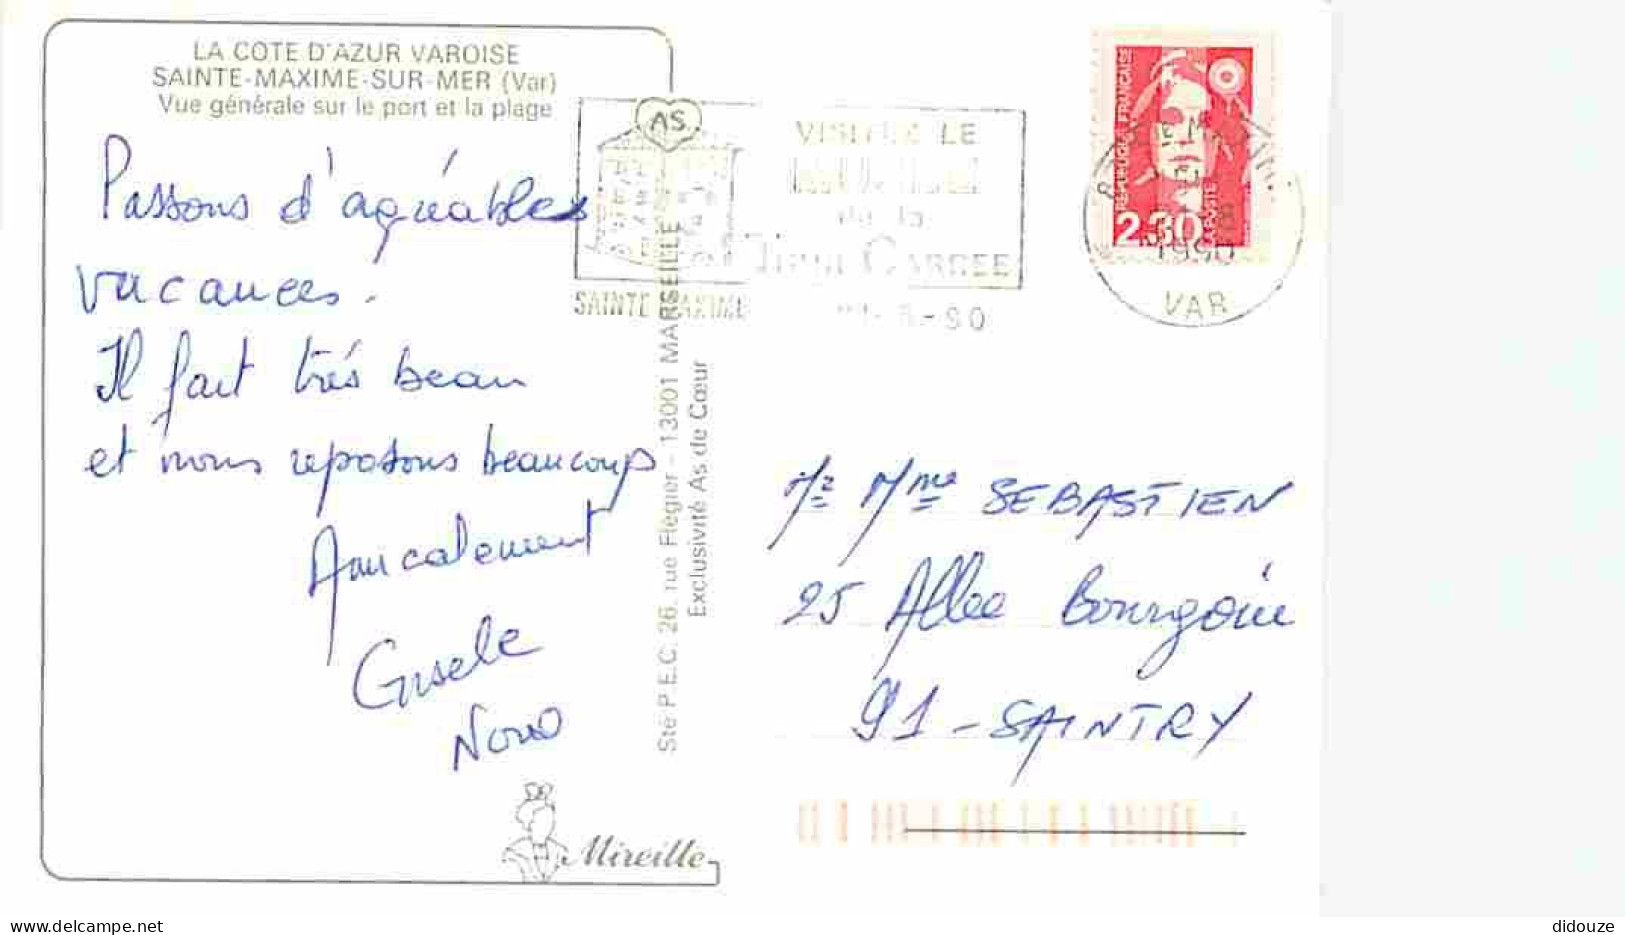 LA COTE D'AZUR VAROISE
SAINTE-MAXIME-SUR-MER (Var)
Vue générale sur le port et la plage
Passons d'agréables
vacances.
Il fait trés beau
et nous reposons beaucoup
Amicalement
Gisele
Sté P.E.C. 26, rue Flégier - 13001 MARSEILLE
Exclusivité As de Cœur
Mireille
AS
VISITEZ LE
de la
CARREE
SAINTE MAXIME
-90
REPUBLIQUE FRANÇAISE
2.30
LA POSTE
1990
VAR
Mr Mme SEBASTIEN
25 Allee Bourgoin
91 - SAINTRY
didouze